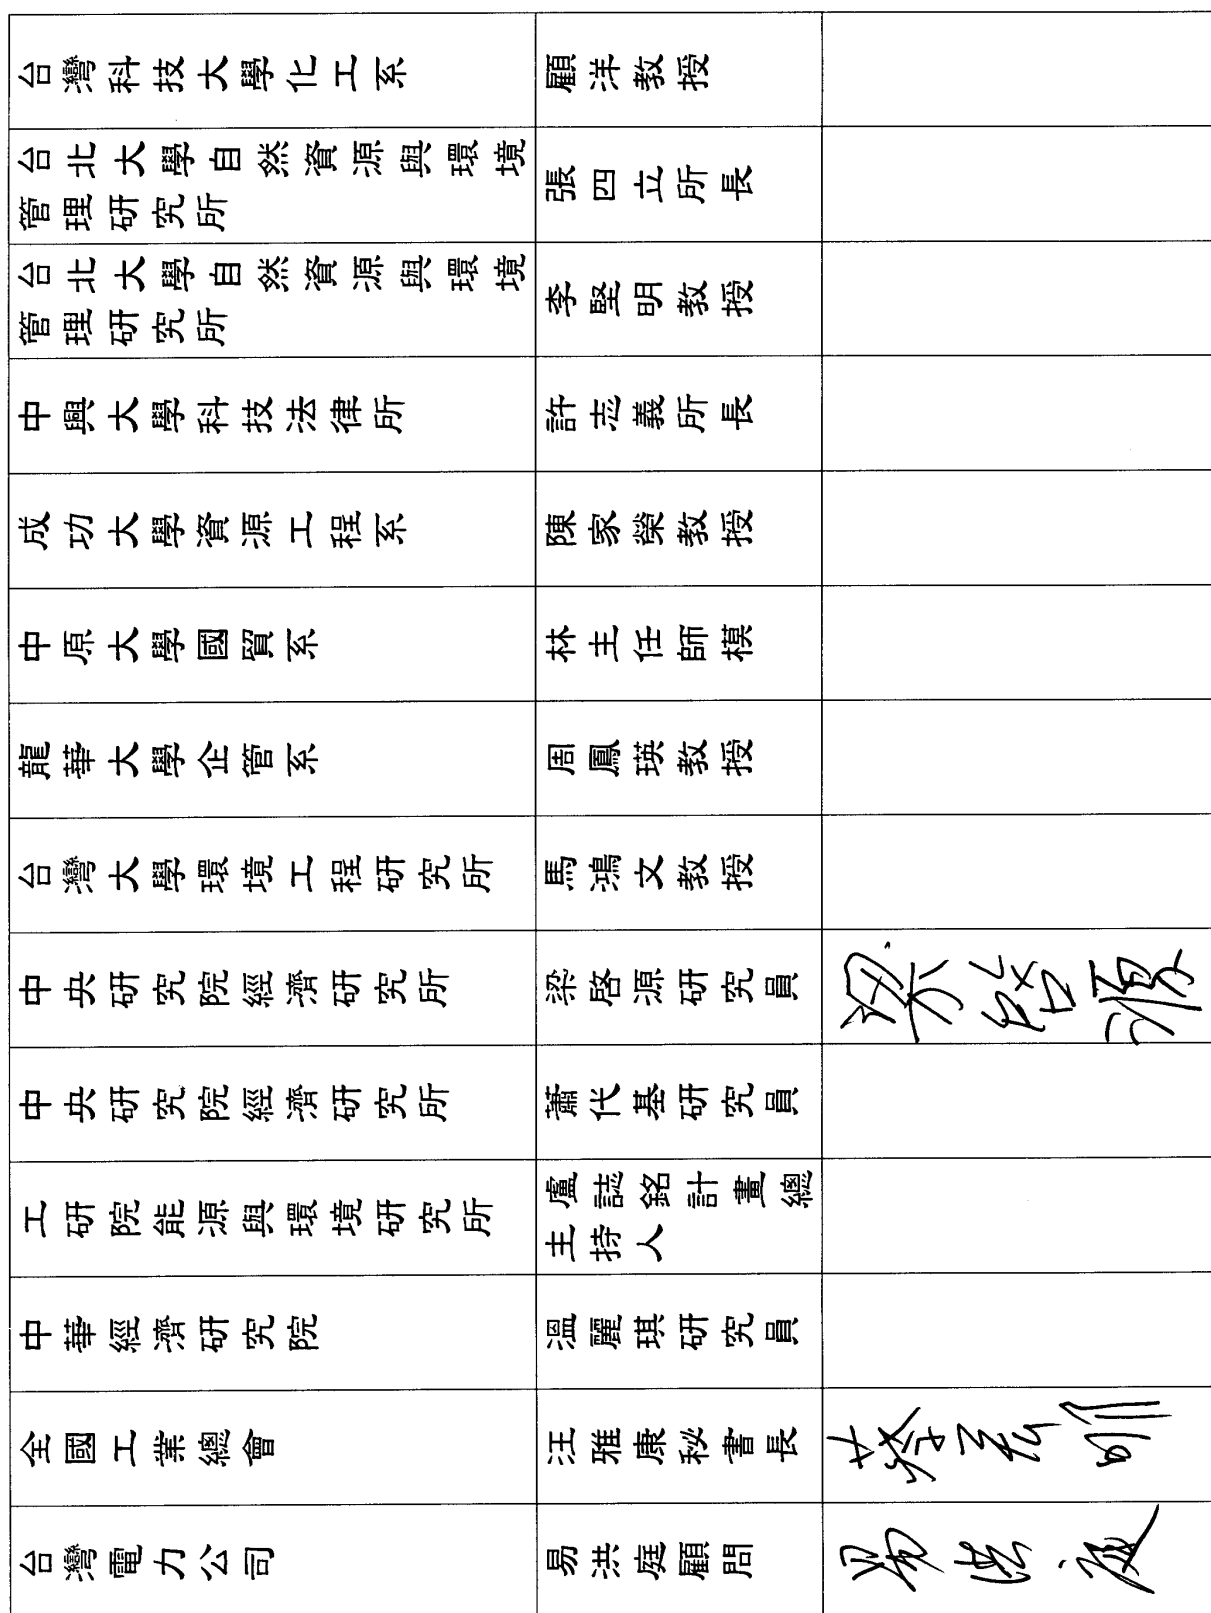 台灣科技大學化工系
顧洋教授
台北大學自然資源與環境
管理研究所
張四立所長
台北大學自然資源與環境
管理研究所
李堅明教授
中興大學科技法律所
許志義所長
成功大學資源工程系
陳家榮教授
中原大學國貿系
林主任師模
龍華大學企管系
周鳳瑛教授
台灣大學環境工程研究所
馬鴻文教授
中央研究院經濟研究所
梁啓源研究員
梁啓源
中央研究院經濟研究所
蕭代基研究員
工研院能源與環境研究所
盧誌銘計畫總
主持人
中華經濟研究院
溫麗琪研究員
全國工業總會
汪雅康秘書長
蔡宏明
台灣電力公司
易洪庭顧問
易洪庭